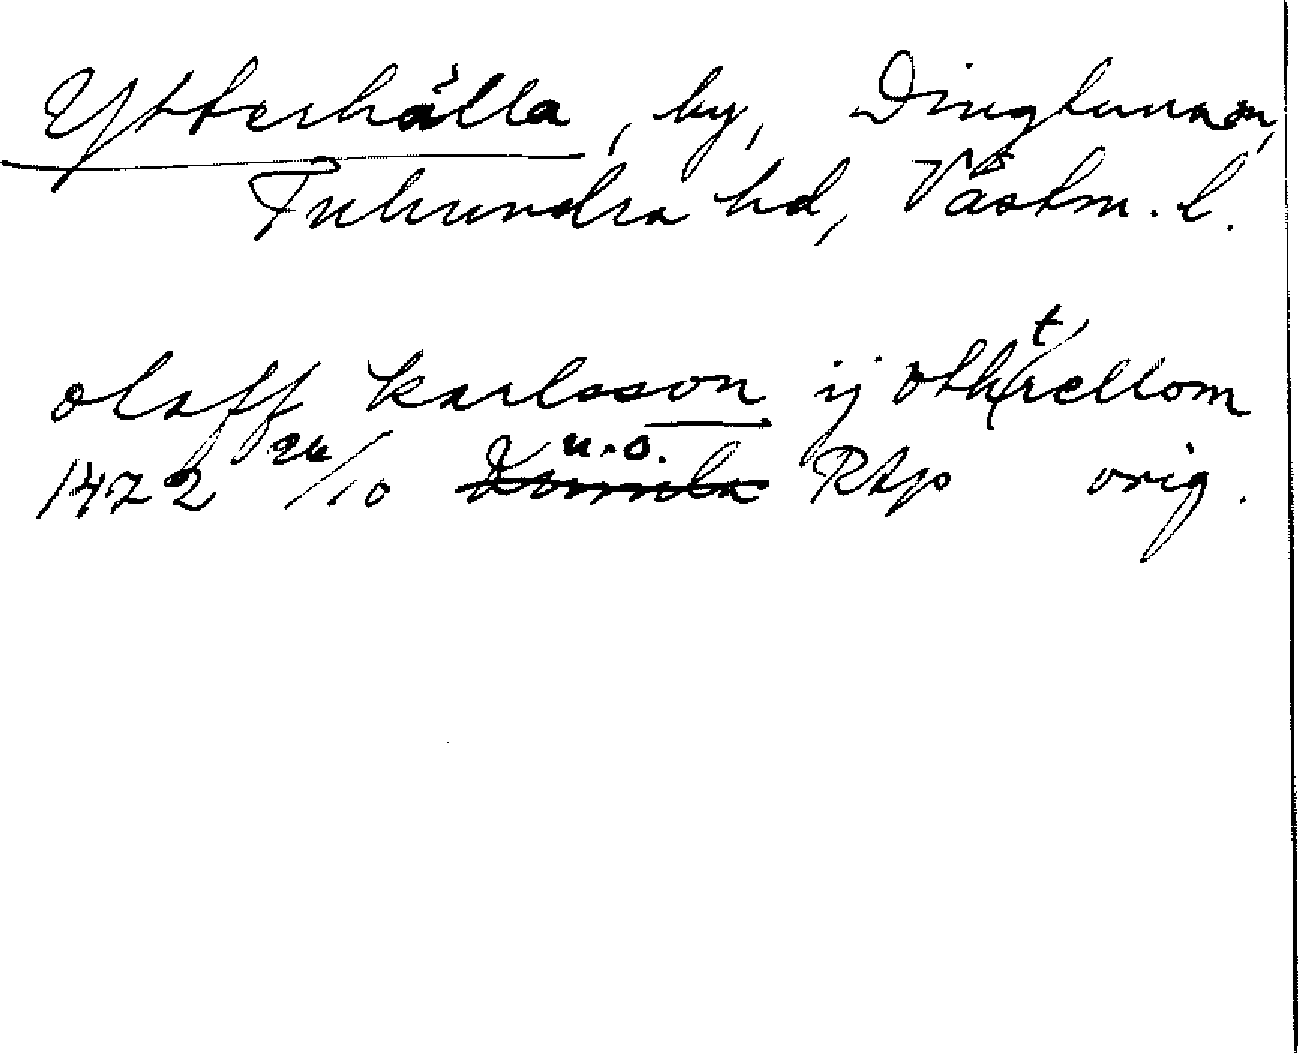 Ytterhälla, by, Dingtuna sn,
Tuhundra hd, Västm. l.
olaff karlsson ij othrællom
1472 26/10 u.o. Rap orig.